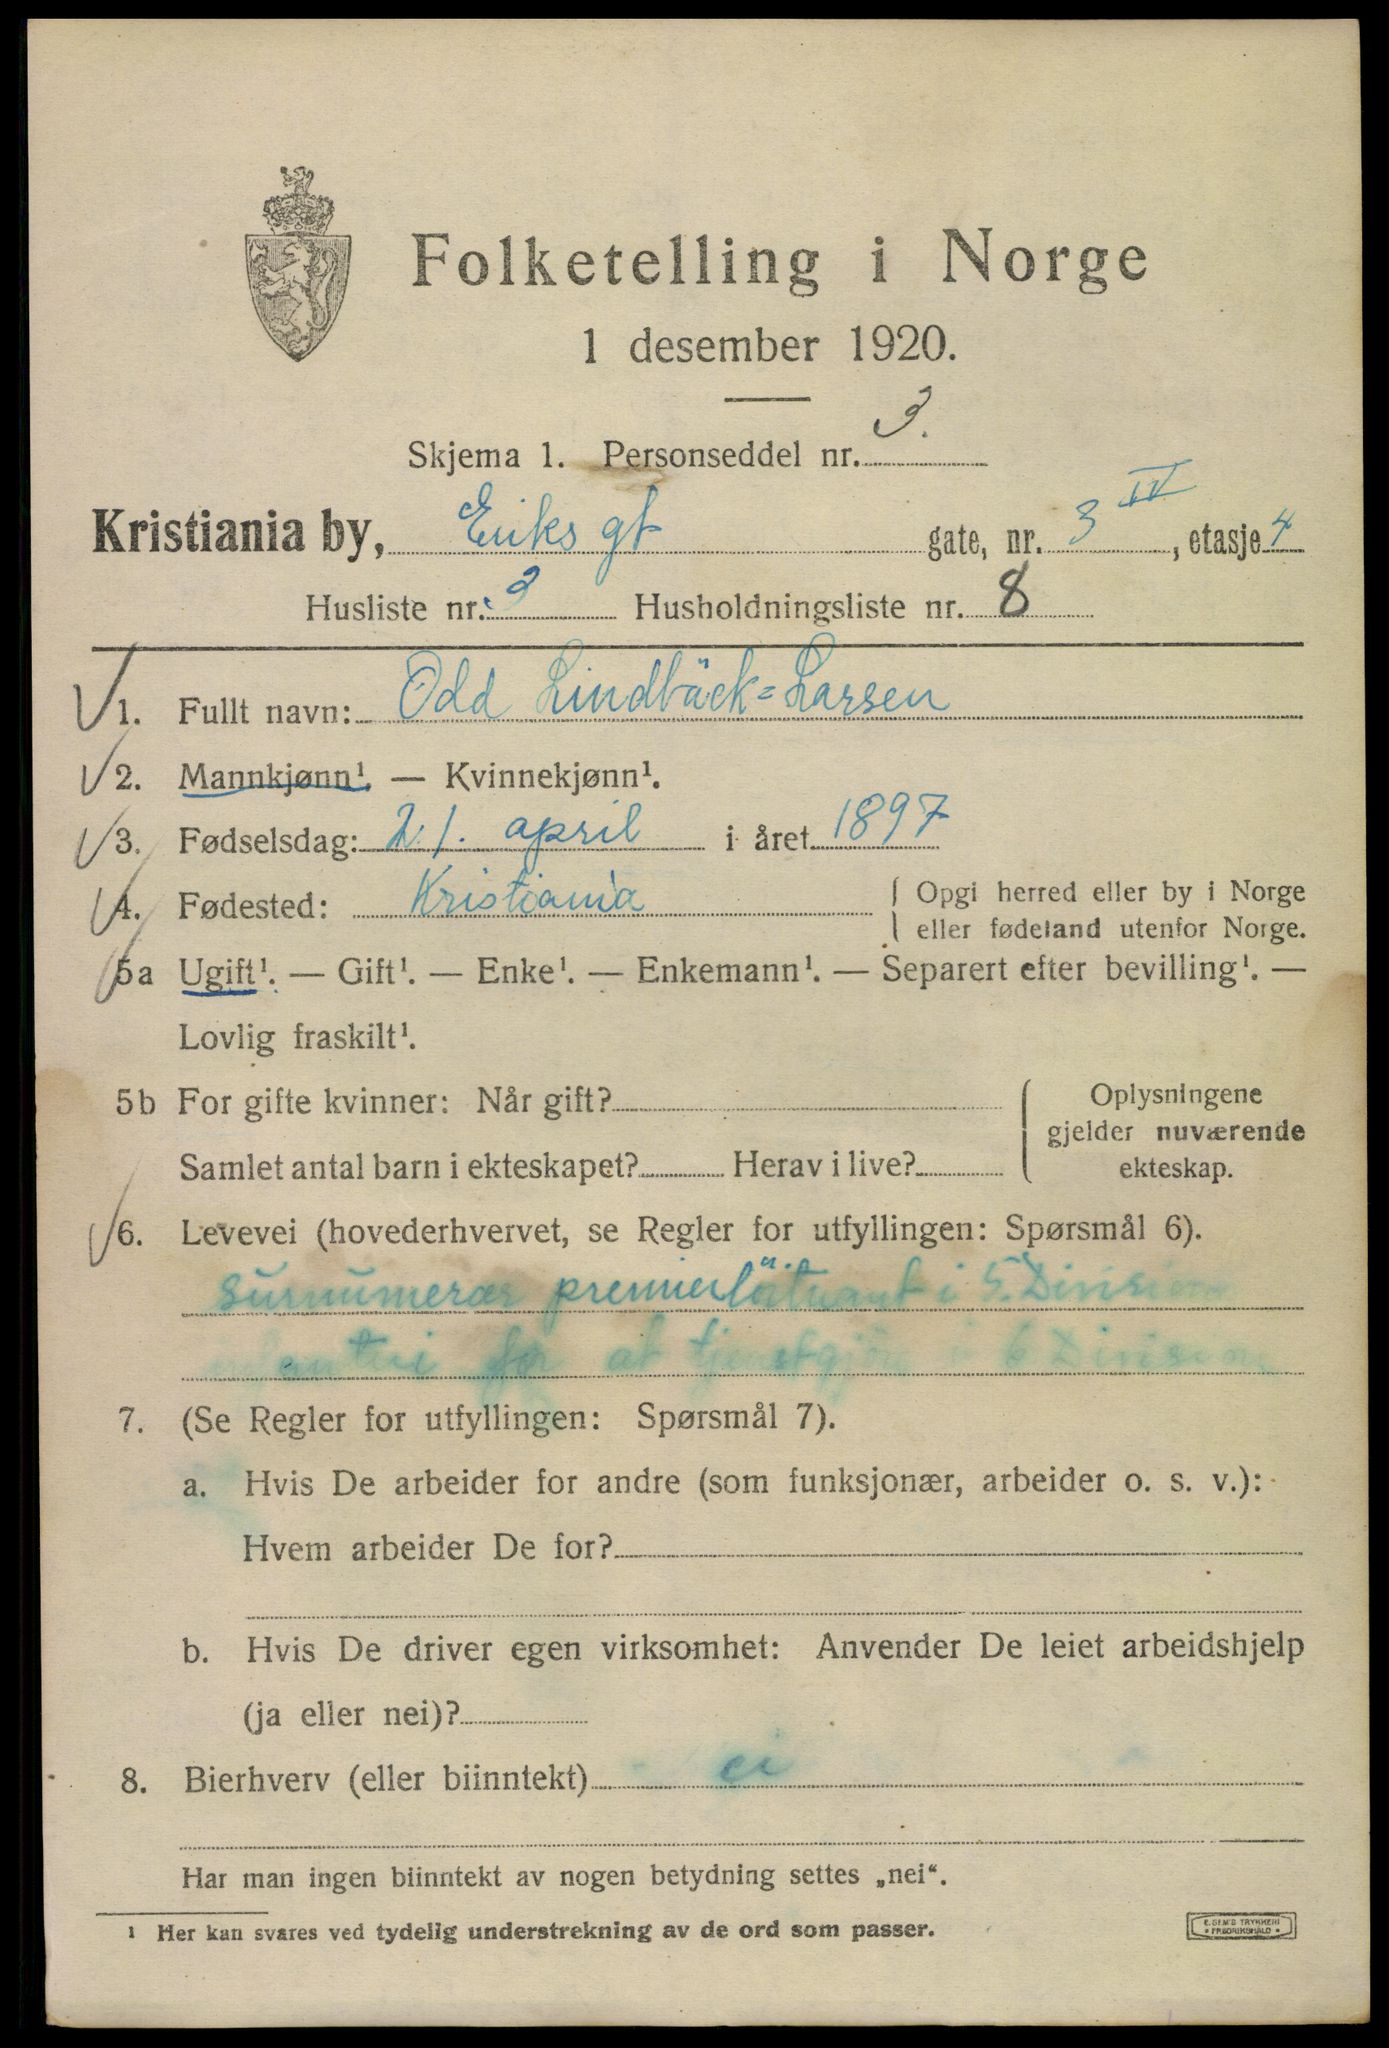 Folketelling i Norge
1 desember 1920.
Skjema 1. Personseddel nr. 3.
Kristiania by, Eriks gt gate, nr. 3 IV, etasje 4
Husliste nr. 3 Husholdningsliste nr. 8
1. Fullt navn: Odd Lindbäck=Larsen
2. Mannkjønn¹. — Kvinnekjønn¹.
3. Fødselsdag: 21. april i året 1897
4. Fødested: Kristiania { Opgi herred eller by i Norge
eller fødeland utenfor Norge.
5a Ugift¹. — Gift¹. — Enke¹. — Enkemann¹. — Separert efter bevilling¹. —
Lovlig fraskilt¹.
5b For gifte kvinner: Når gift? { Oplysningene
gjelder nuværende
Samlet antal barn i ekteskapet? Herav i live? ekteskap.
6. Levevei (hovederhvervet, se Regler for utfyllingen: Spørsmål 6).
surnumerær premierløitnant i 5. Divisions
infanteri for at tjenstgjøre i 6 Division
7. (Se Regler for utfyllingen: Spørsmål 7).
a. Hvis De arbeider for andre (som funksjonær, arbeider o. s. v.):
Hvem arbeider De for?
b. Hvis De driver egen virksomhet: Anvender De leiet arbeidshjelp
(ja eller nei)?
8. Bierhverv (eller biinntekt) ei
Har man ingen biinntekt av nogen betydning settes „nei“.
¹ Her kan svares ved tydelig understrekning av de ord som passer.
E. SEM'S TRYKKERI
FREDRIKSHALD